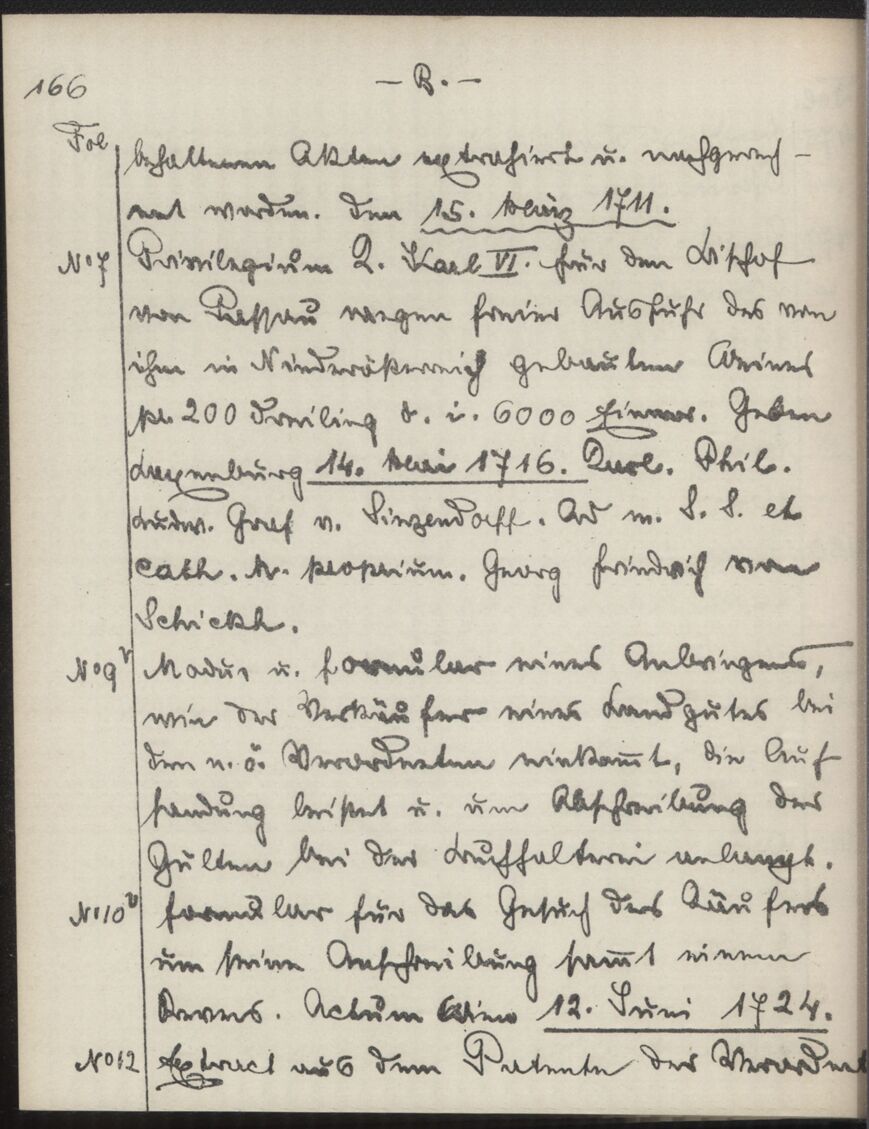 166 — B. —
Fol
behaltenen Akten extrahiert u. nachgerech-
net worden. Den 15. März 1711.
No 7 Privilegium K. Karl VI. für den Bischof
von Passau wegen freier Ausfuhr des von
ihm in Niederösterreich gebauten Weines
pr 200 Dreiling d. i. 6000 Eimer. Geben
Laxenburg 14. Mai 1716. Phil.
Ludw. Graf v. Sinzendorff. Ad m. S. S. et
Cath. M. proprium. Georg Friedrich von
Schickh.
No 9v Modus u. Formular eines Anbringens,
wie der Verkäufer eines Landgutes bei
den n. ö. Verordneten einkom̄t, die Auf
sandung leistet u. um Abschreibung der
Gülten bei der Buchhalterei anlangt.
No 10v Formular für das Gesuch des Käufers
um seine Anschreibung sam̄t einem
Revers. Actum Wien 12. Juni 1724.
No 12 Extract aus dem Patente der Verordnet